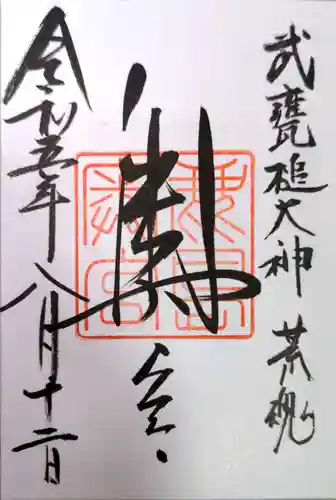 武甕槌大神 荒魂
奥宮
令和五年八月十二日
鹿島
神宮